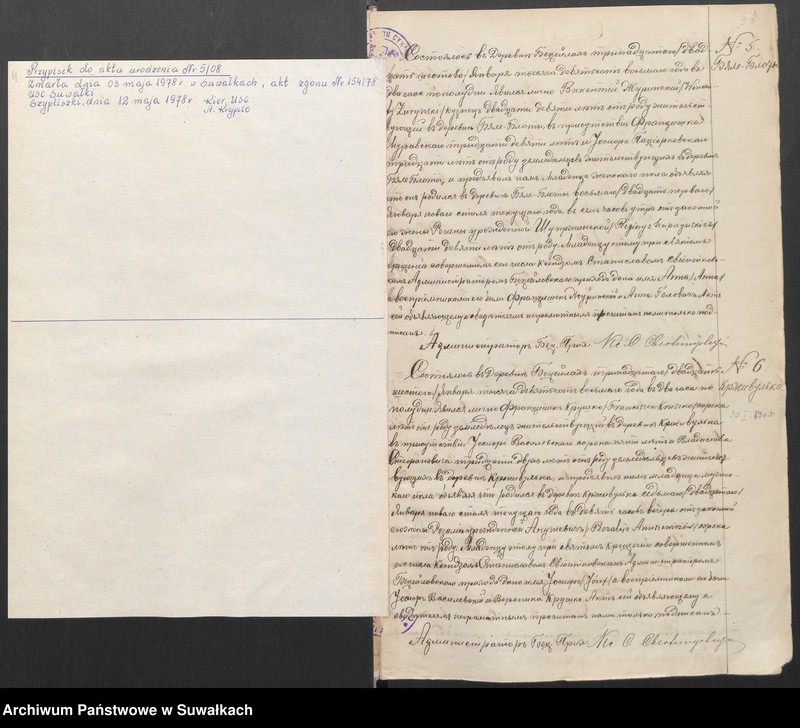 Przypisek do aktu urodzenia Nr 5/08
Zmarła dnia 03 maja 1978 r. w Suwałkach, akt zgonu Nr 154/78
USC Suwałki
Szypliszki, dnia 12 maja 1978 r. Kier. USC
№ 5
Бяле-Блоты
Состоялось въ деревнѣ Бецейлахъ тринадцатаго /двад-
цать шестого/ Января тысяча девятьсотъ восьмого года въ
два часа пополудни. Явился лично Викентий
/кузнецъ двадцати девяти лѣтъ отъ роду жительст-
вующий въ деревнѣ Бяле-Блоты, въ присутствии Францишка
тридцати девяти лѣтъ и Иосифа
тридцати лѣтъ отъ роду земледѣльцевъ жительствующихъ въ деревнѣ
Бяле-Блоты, и предъявилъ намъ младенца женскаго пола объявляя
что онъ родился въ деревнѣ Бяле-Блоты восьмаго /двадцать перваго/
Января новаго стиля текущаго года въ семь часовъ утра отъ законной
его жены Регины урожденной
двадцати девяти лѣтъ отъ роду. Младенцу этому при святомъ
крещении совершенномъ сего числа Ксендзомъ Станиславомъ
Администраторомъ Бецейловскаго прихода дано имя Анна /Anna/
а восприемниками его были Францишекъ и Анна Головачъ. Актъ
сей объявляющему и свидѣтелямъ неграмотнымъ прочитанъ нами только под-
писанъ.
Администраторъ Бец. Прих. Кс. С
№ 6
Кржевулька
Состоялось въ деревнѣ Бецейлахъ тринадцатаго /двадцать
шестого/ Января тысяча девятьсотъ восьмого года въ два часа по
полудни. Явился лично Францишекъ Крушко /Franciszek Kruszko/ сорока
лѣтъ отъ роду земледѣлецъ жительствующий въ деревнѣ Кржевулька
въ присутствии Иосифа Василевскаго сорока пяти лѣтъ и Владислава
Стефановича тридцати двухъ лѣтъ отъ роду земледѣльцевъ жительст-
вующихъ въ деревнѣ Кржевулька, и предъявилъ намъ младенца мужес-
каго пола объявляя что родился въ деревнѣ Кржевулька седьмаго /двадцатаго/
Января новаго стиля текущаго года въ девять часовъ вечера отъ законной
его жены Розалии урожденной Анусевичъ /Rozalji Anusewiczów/ сорока
лѣтъ отъ роду. Младенцу этому при святомъ Крещении совершенномъ
сего числа Ксендзомъ Станиславомъ Администраторомъ
Бецейловскаго прихода дано имя Иосифъ /Józef/ а восприемниками его были
Иосифъ Василевский и Вероника Крушко. Актъ сей объявляющему и
свидѣтелямъ неграмотнымъ прочитанъ нами только подписанъ.
Администраторъ Бец. Прих. Кс. С
Archiwum Państwowe w Suwałkach